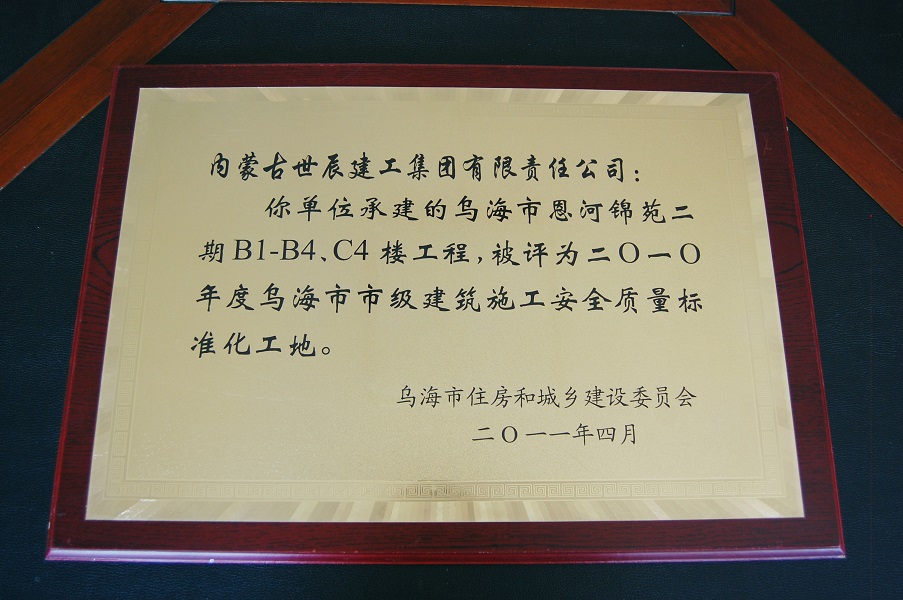 内蒙古世辰建工集团有限责任公司：
你单位承建的乌海市恩河锦苑二
期B1-B4、C4楼工程，被评为二O一O
年度乌海市市级建筑施工安全质量标
准化工地。
乌海市住房和城乡建设委员会
二O一一年四月